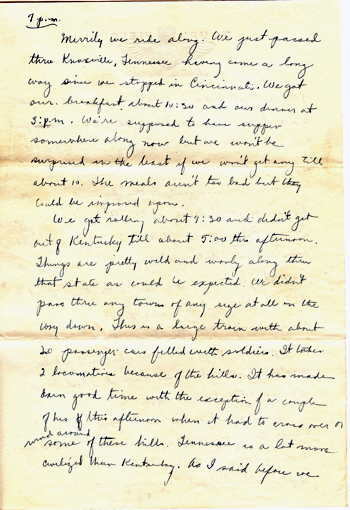 7 p.m.
Merrily we ride along. We just passed
thru Knoxville, Tennessee having come a long
way since we stopped in Cincinnati. We got
our breakfast about 10:30 and our dinner at
3:p.m. We're supposed to have supper
somewhere along now but we won't be
surprised in the least if we won't get any till
about 10. The meals aren't too bad but they
could be improved upon.
We got rolling about 9:30 and didn't get
out of Kentucky till about 5:00 this afternoon.
Things are pretty wild and wooly along thru
that state as could be expected. We didn't
pass thru any towns of any size at all on the
way down. This is a large train with about
20 passenger cars filled with soldiers. It takes
2 locomotives because of the hills. It has made
darn good time with the exception of a couple
of hrs of this afternoon when it had to cross over or
wind around
some of these hills. Tennessee is a lot more
civilized than Kentucky. As I said before we